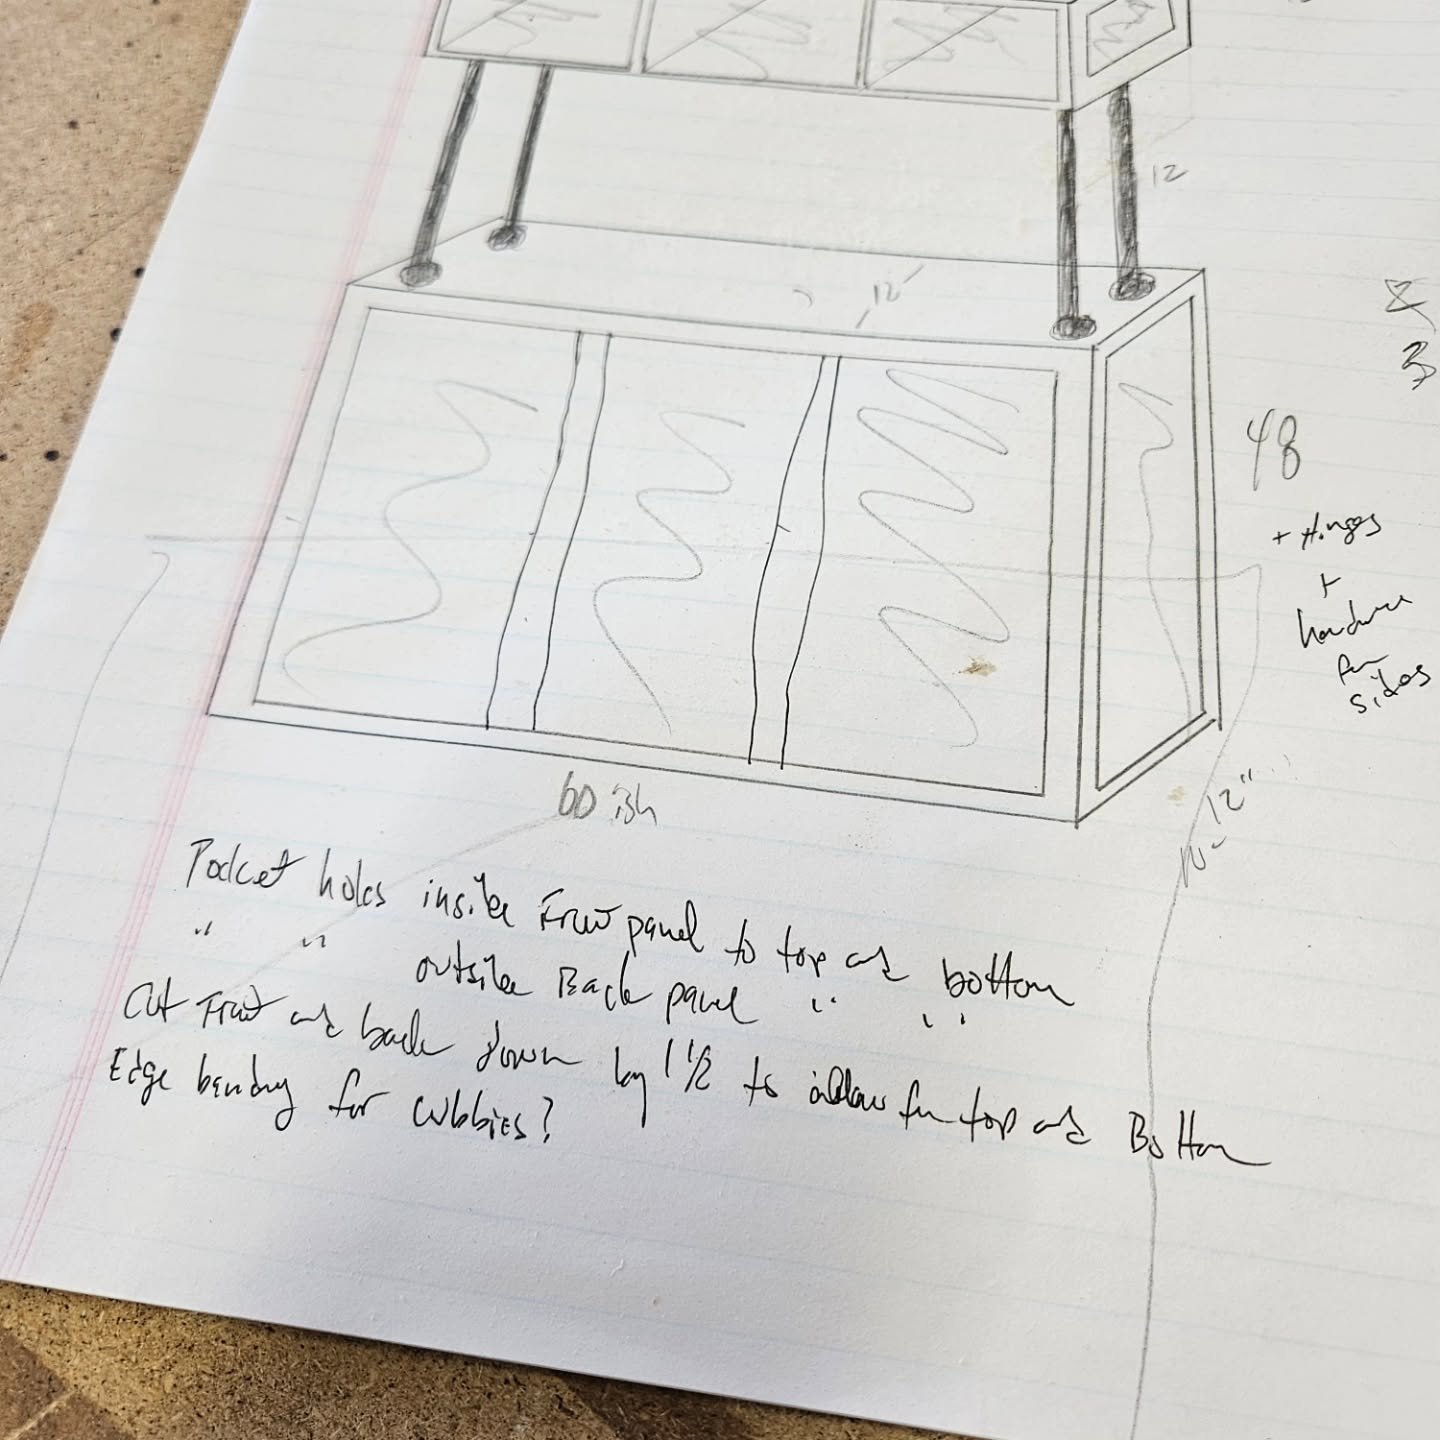 12
12"
48
+ Hinges
+
hardware
for
sides
10-12"
60 ish
Pocket holes inside Front panel to top and bottom
" " outside Back panel " "
Cut Front and back down by 1 1/2 to allow for top and Bottom
Edge banding for cubbies?